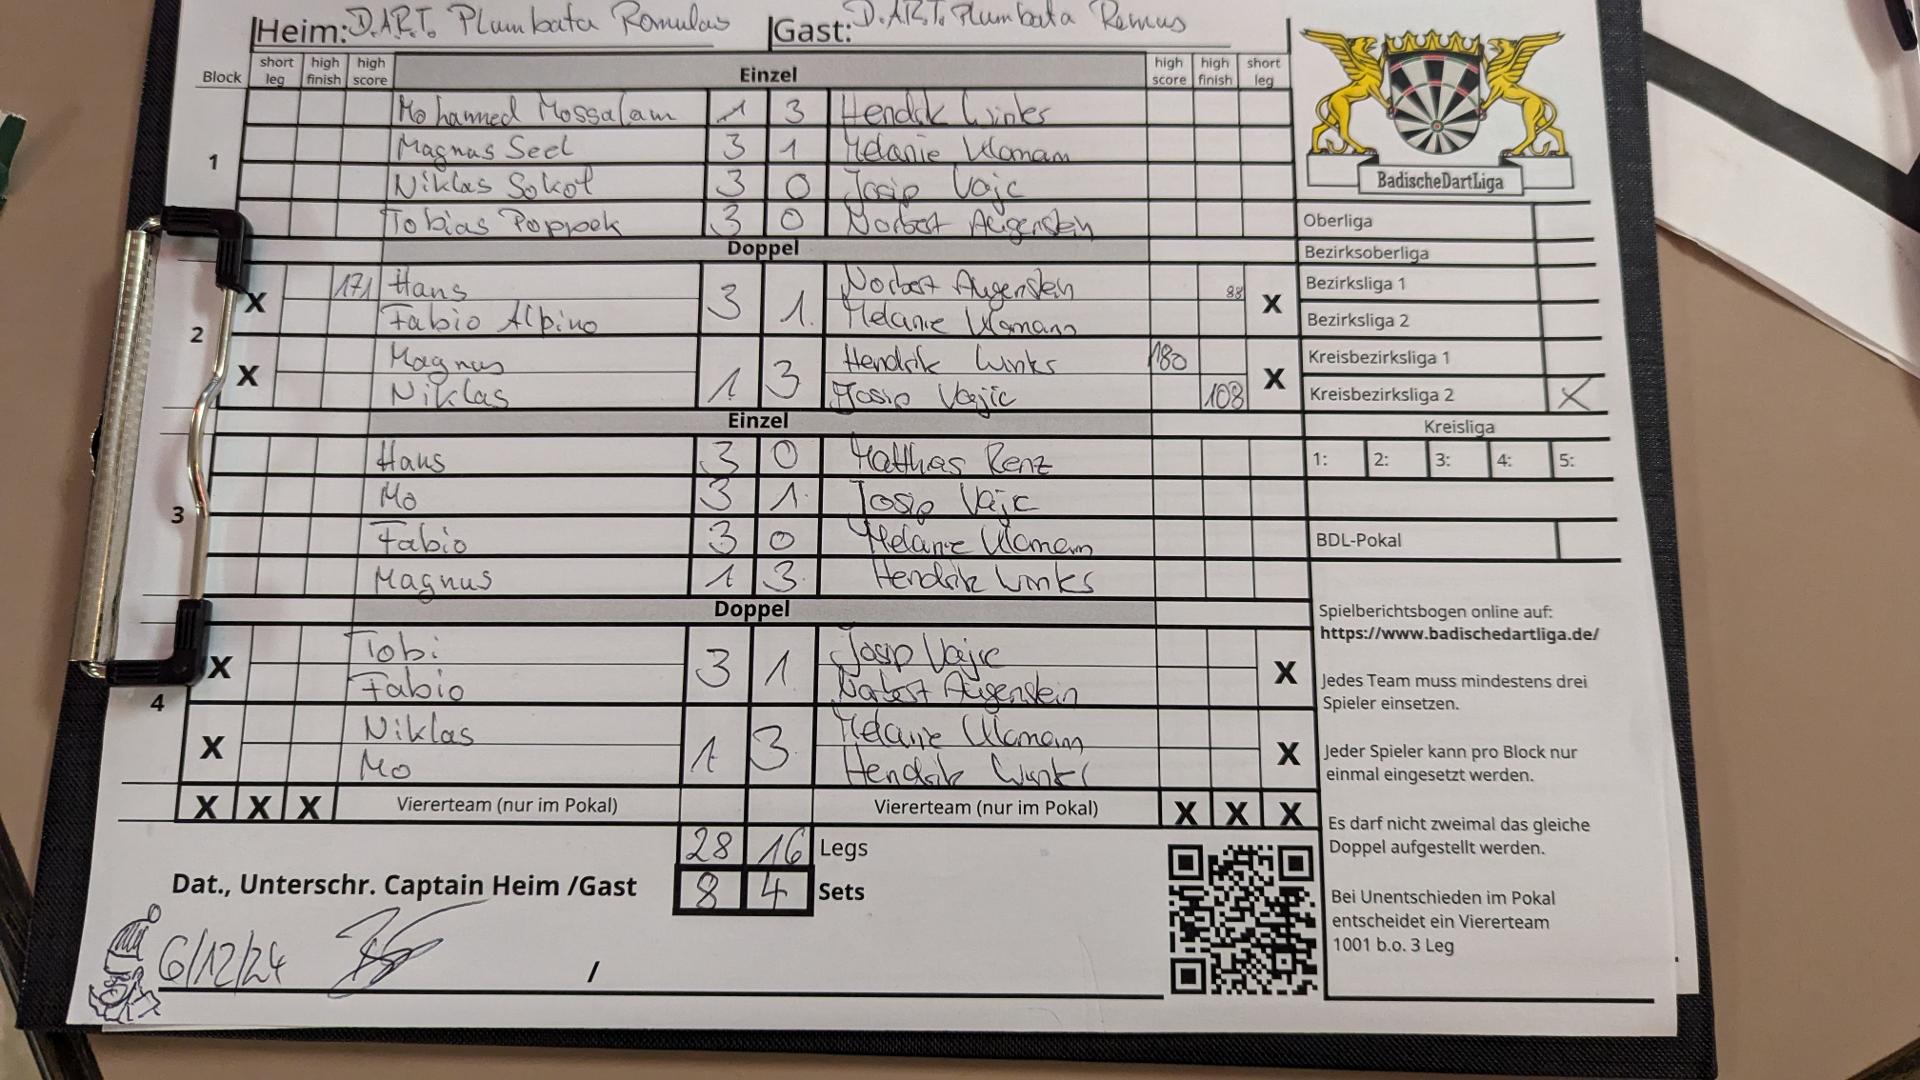 Heim: D.A.R.T. Plumbata Romulus Gast: D.A.R.T. Plumbata Remus
Block short leg high finish high score Einzel high score high finish short leg
1
Mohammed Mossalam 1 3 Hendrik Winks
Magnus Seel 3 1 Melanie Ulomann
Niklas Sokol 3 0 Josip Vajc
Tobias Poppek 3 0 Norbert Augenstein
Doppel
2
X 171 Hans 3 1. Norbert Augenstein 88 X
Fabio Albino Melanie Ulomann
X Magnus 1 3 Hendrik Winks 180 X
Niklas Josip Vajic 108
Einzel
3
Hans 3 0 Matthias Renz
Mo 3 1. Josip Vajc
Fabio 3 0 Melanie Ulomann
Magnus 1 3. Hendrik Winks
Doppel
4
X Tobi 3 1 Josip Vajic X
Fabio Norbert Augenstein
X Niklas 1 3 Melanie Ulomann X
Mo Hendrik Winks
X X X Viererteam (nur im Pokal) Viererteam (nur im Pokal) X X X
28 16 Legs
Dat., Unterschr. Captain Heim /Gast 8 4 Sets
6/12/24 /
BadischeDartLiga
Oberliga
Bezirksoberliga
Bezirksliga 1
Bezirksliga 2
Kreisbezirksliga 1
Kreisbezirksliga 2 X
Kreisliga
1: 2: 3: 4: 5:
BDL-Pokal
Spielberichtsbogen online auf:
https://www.badischedartliga.de/
Jedes Team muss mindestens drei
Spieler einsetzen.
Jeder Spieler kann pro Block nur
einmal eingesetzt werden.
Es darf nicht zweimal das gleiche
Doppel aufgestellt werden.
Bei Unentschieden im Pokal
entscheidet ein Viererteam
1001 b.o. 3 Leg